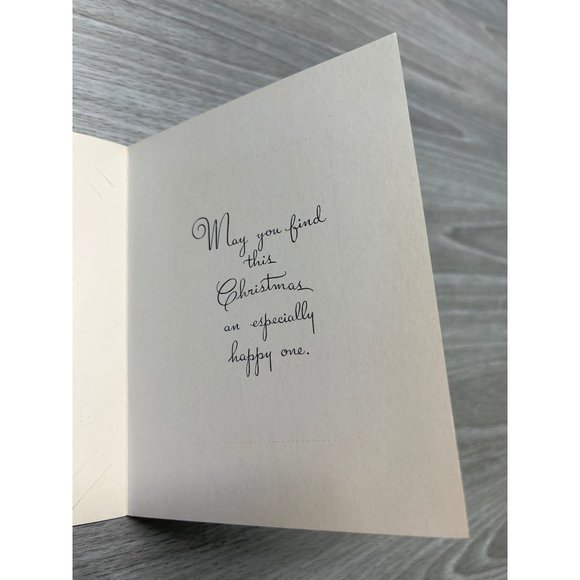 May you find
this
Christmas
an especially
happy one.